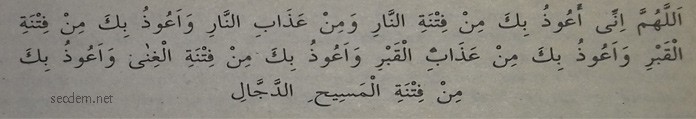 اَللَّهُمَّ اِنِّى أَعُوذُ بِكَ مِنْ فِتْنَةِ النَّارِ وَمِنْ عَذَابِ النَّارِ وَاَعُوذُ بِكَ مِنْ فِتْنَةِ
الْقَبْرِ وَاَعُوذُ بِكَ مِنْ عَذَابِ الْقَبْرِ وَاَعُوذُ بِكَ مِنْ فِتْنَةِ الْغِنٰى وَاَعُوذُ بِكَ
مِنْ فِتْنَةِ الْمَسِيحِ الدَّجَّالِ
seodem.net